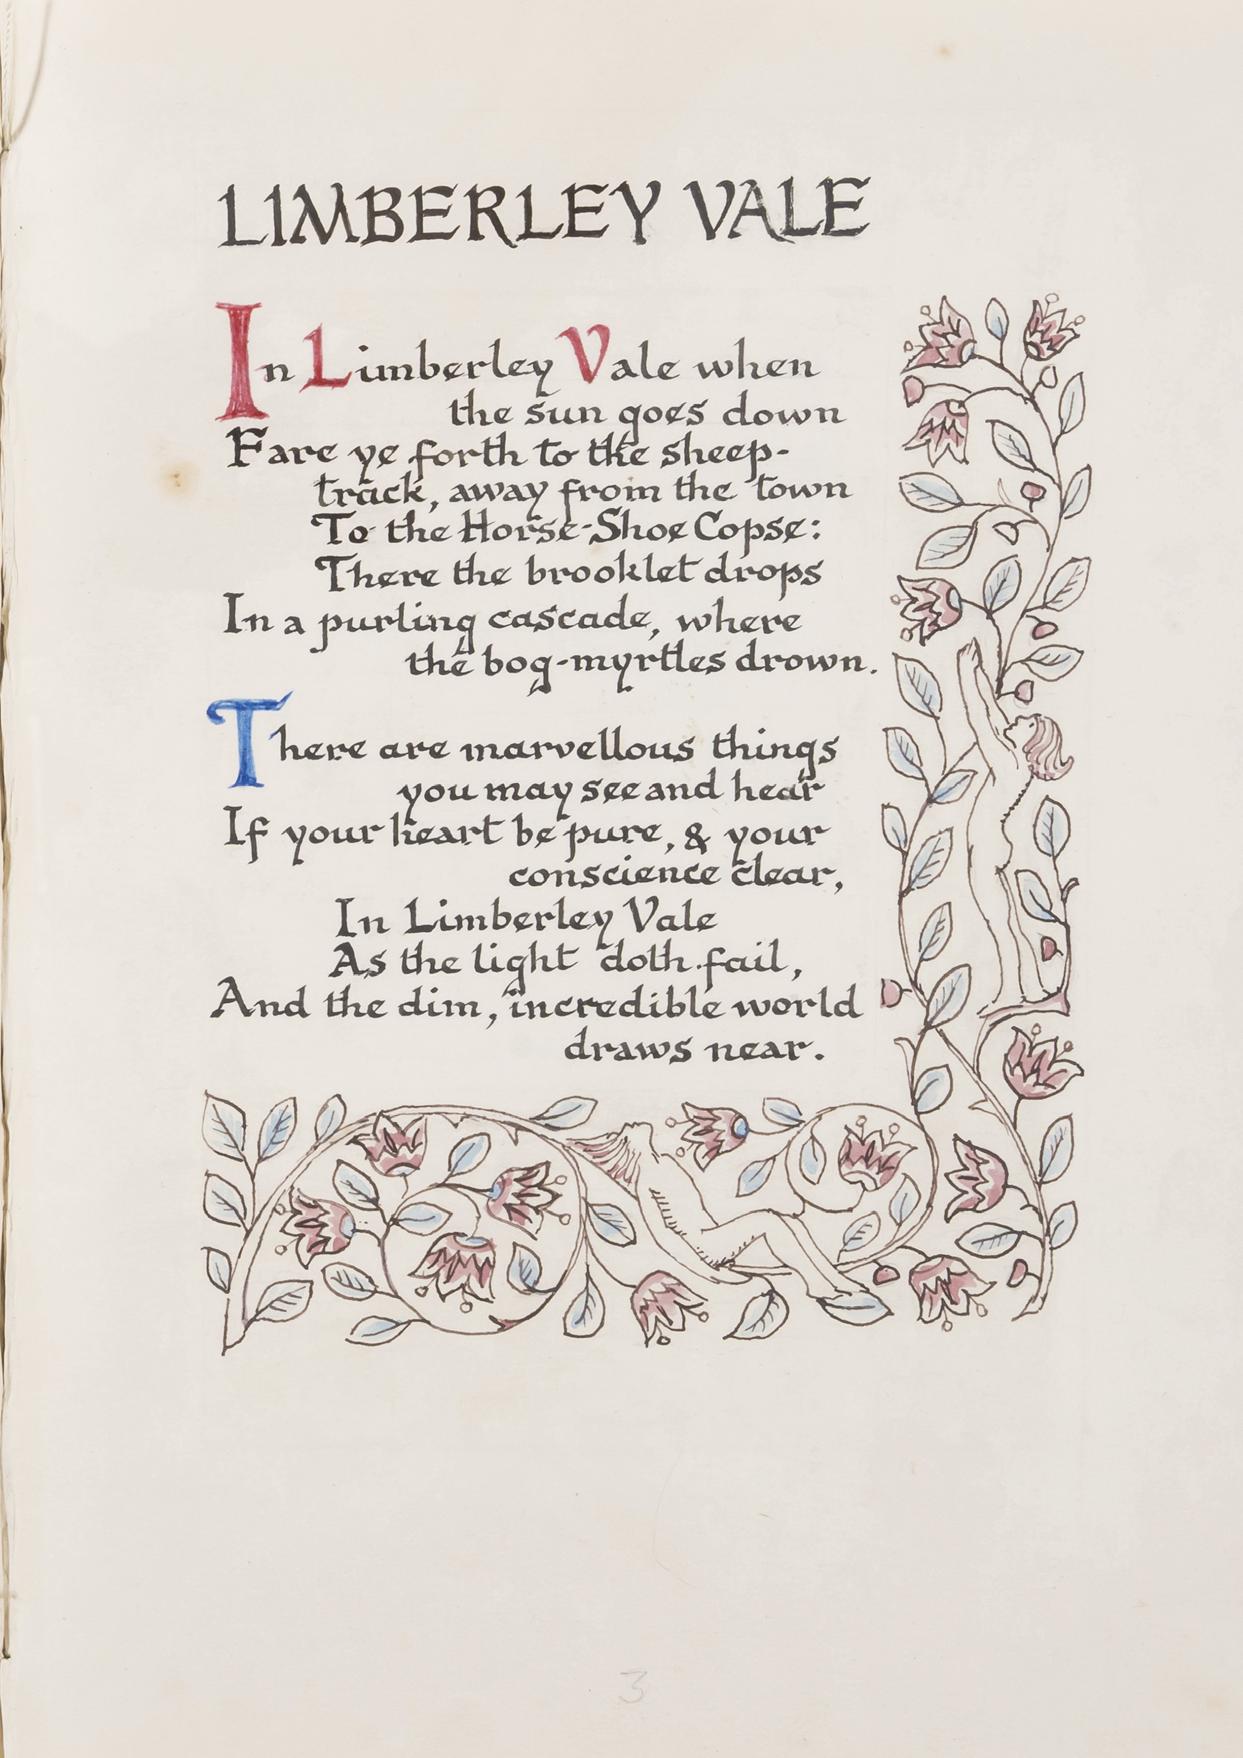 LIMBERLEY VALE
In Limberley Vale when
the sun goes down
Fare ye forth to the sheep-
track, away from the town
To the Horse-Shoe Copse:
There the brooklet drops
In a purling cascade, where
the bog-myrtles drown.
There are marvellous things
you may see and hear
If your heart be pure, & your
conscience clear,
In Limberley Vale
As the light doth fail,
And the dim, incredible world
draws near.
3